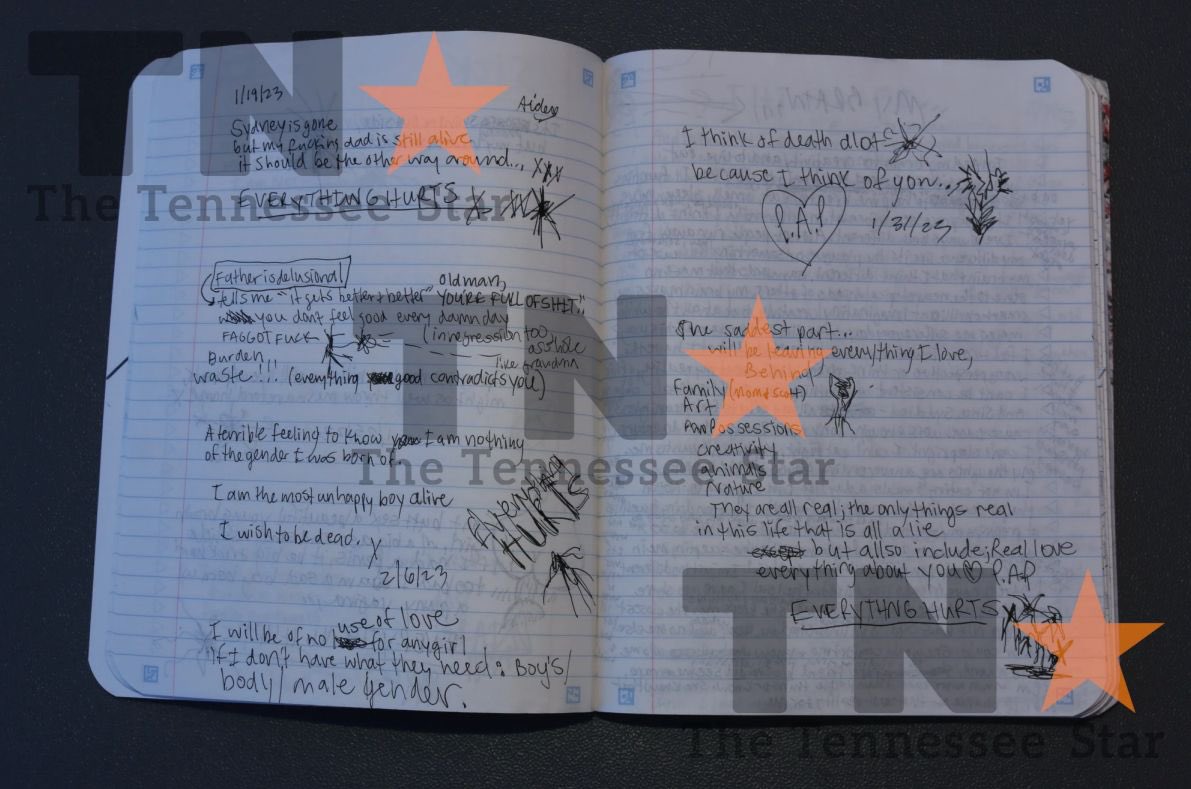 1/19/23
Aiden
Sydney is gone
but my fucking dad is still alive
it should be the other way around... XXX
EVERYTHING HURTS
Father is delusional
old man,
tells me "it gets better & better" YOU'RE FULL OF SHIT!
you don't feel good every damn day
FAGGOT FUCK
(in regression too
asshole
Burden
like grandma
waste!!! (everything good contradicts you)
A terrible feeling to know I am nothing
of the gender I was born of.
I am the most unhappy boy alive
I wish to be dead.
2/6/23
Everything
HURTS
use of love
I will be of no for any girl
if I don't have what they need: Boy's/
body/male gender.
I think of death alot
because I think of you...
P.A.P
1/31/23
The saddest part...
will be leaving everything I love,
Behind
Family (mom & scott)
Art
Possessions
creativity
animals
Nature
They are all real; the only things real
in this life that is all a lie
but allso include; Real love
everything about you ♡ P.A.P
EVERYTHNG HURTS
TN
The Tennessee Star
TN
The Tennessee Star
TN
The Tennessee Star